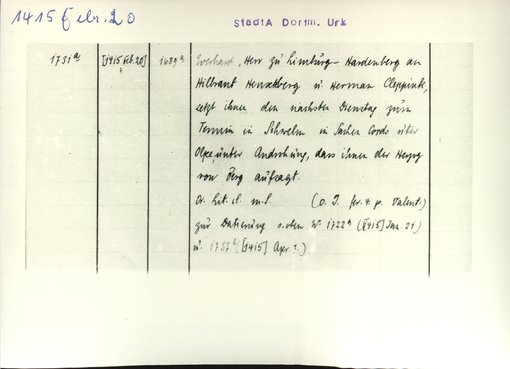 1415 Febr. 20
StadtA Dortm. Urk
1731a [1415 Febr. 20] ? 1689a Everhard, Herr zu Limburg-Hardenberg an
Hilbrant Henxtberg u. Herman Cleppink,
setzt ihnen den nächsten Dienstag zum
Termin in Schwelm in Sachen Cords uter
Olpe, unter Androhung, dass ihnen der Herzog
von Berg aufsagt.
Or. lit. cl. m. S. (D. J. fer. 4 p. Valent.)
zur Datierung s. oben Nr. 1722a ([1415] Jan. 21)
u. 1737b ([1415] Apr. 1.)